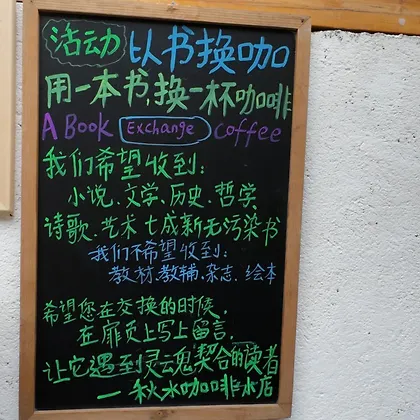 活动 以书换咖
用一本书,换一杯咖啡
A Book Exchange coffee
我们希望收到:
小说、文学、历史、哲学、
诗歌、艺术 七成新无污染书
我们不希望收到:
教材、教辅、杂志、绘本
希望您在交换的时候,
在扉页上写上留言,
让它遇到灵魂契合的读者
—秋水咖啡水店